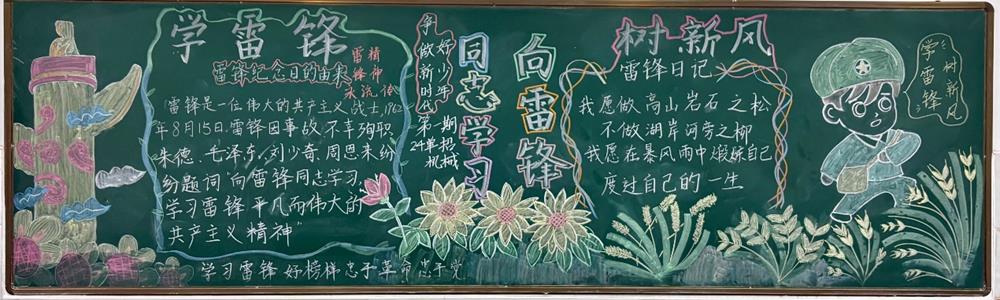 学雷锋
雷锋纪念日的由来
雷锋精神
永流传
雷锋是一位伟大的共产主义战士,1962
年8月15日.雷锋因事故不幸殉职
朱德、毛泽东、刘少奇、周恩来纷
纷题词"向雷锋同志学习"
学习雷锋平凡而伟大的
共产主义精神"
学习雷锋 好榜样忠于革命忠于党
争做新时代
好少年
第一期
24单招
机械
向雷锋
同志学习
树新风
雷锋日记
我愿做高山岩石之松
不做湖岸河旁之柳
我愿在暴风雨中煅炼自己
度过自己的一生
学雷锋
树新风